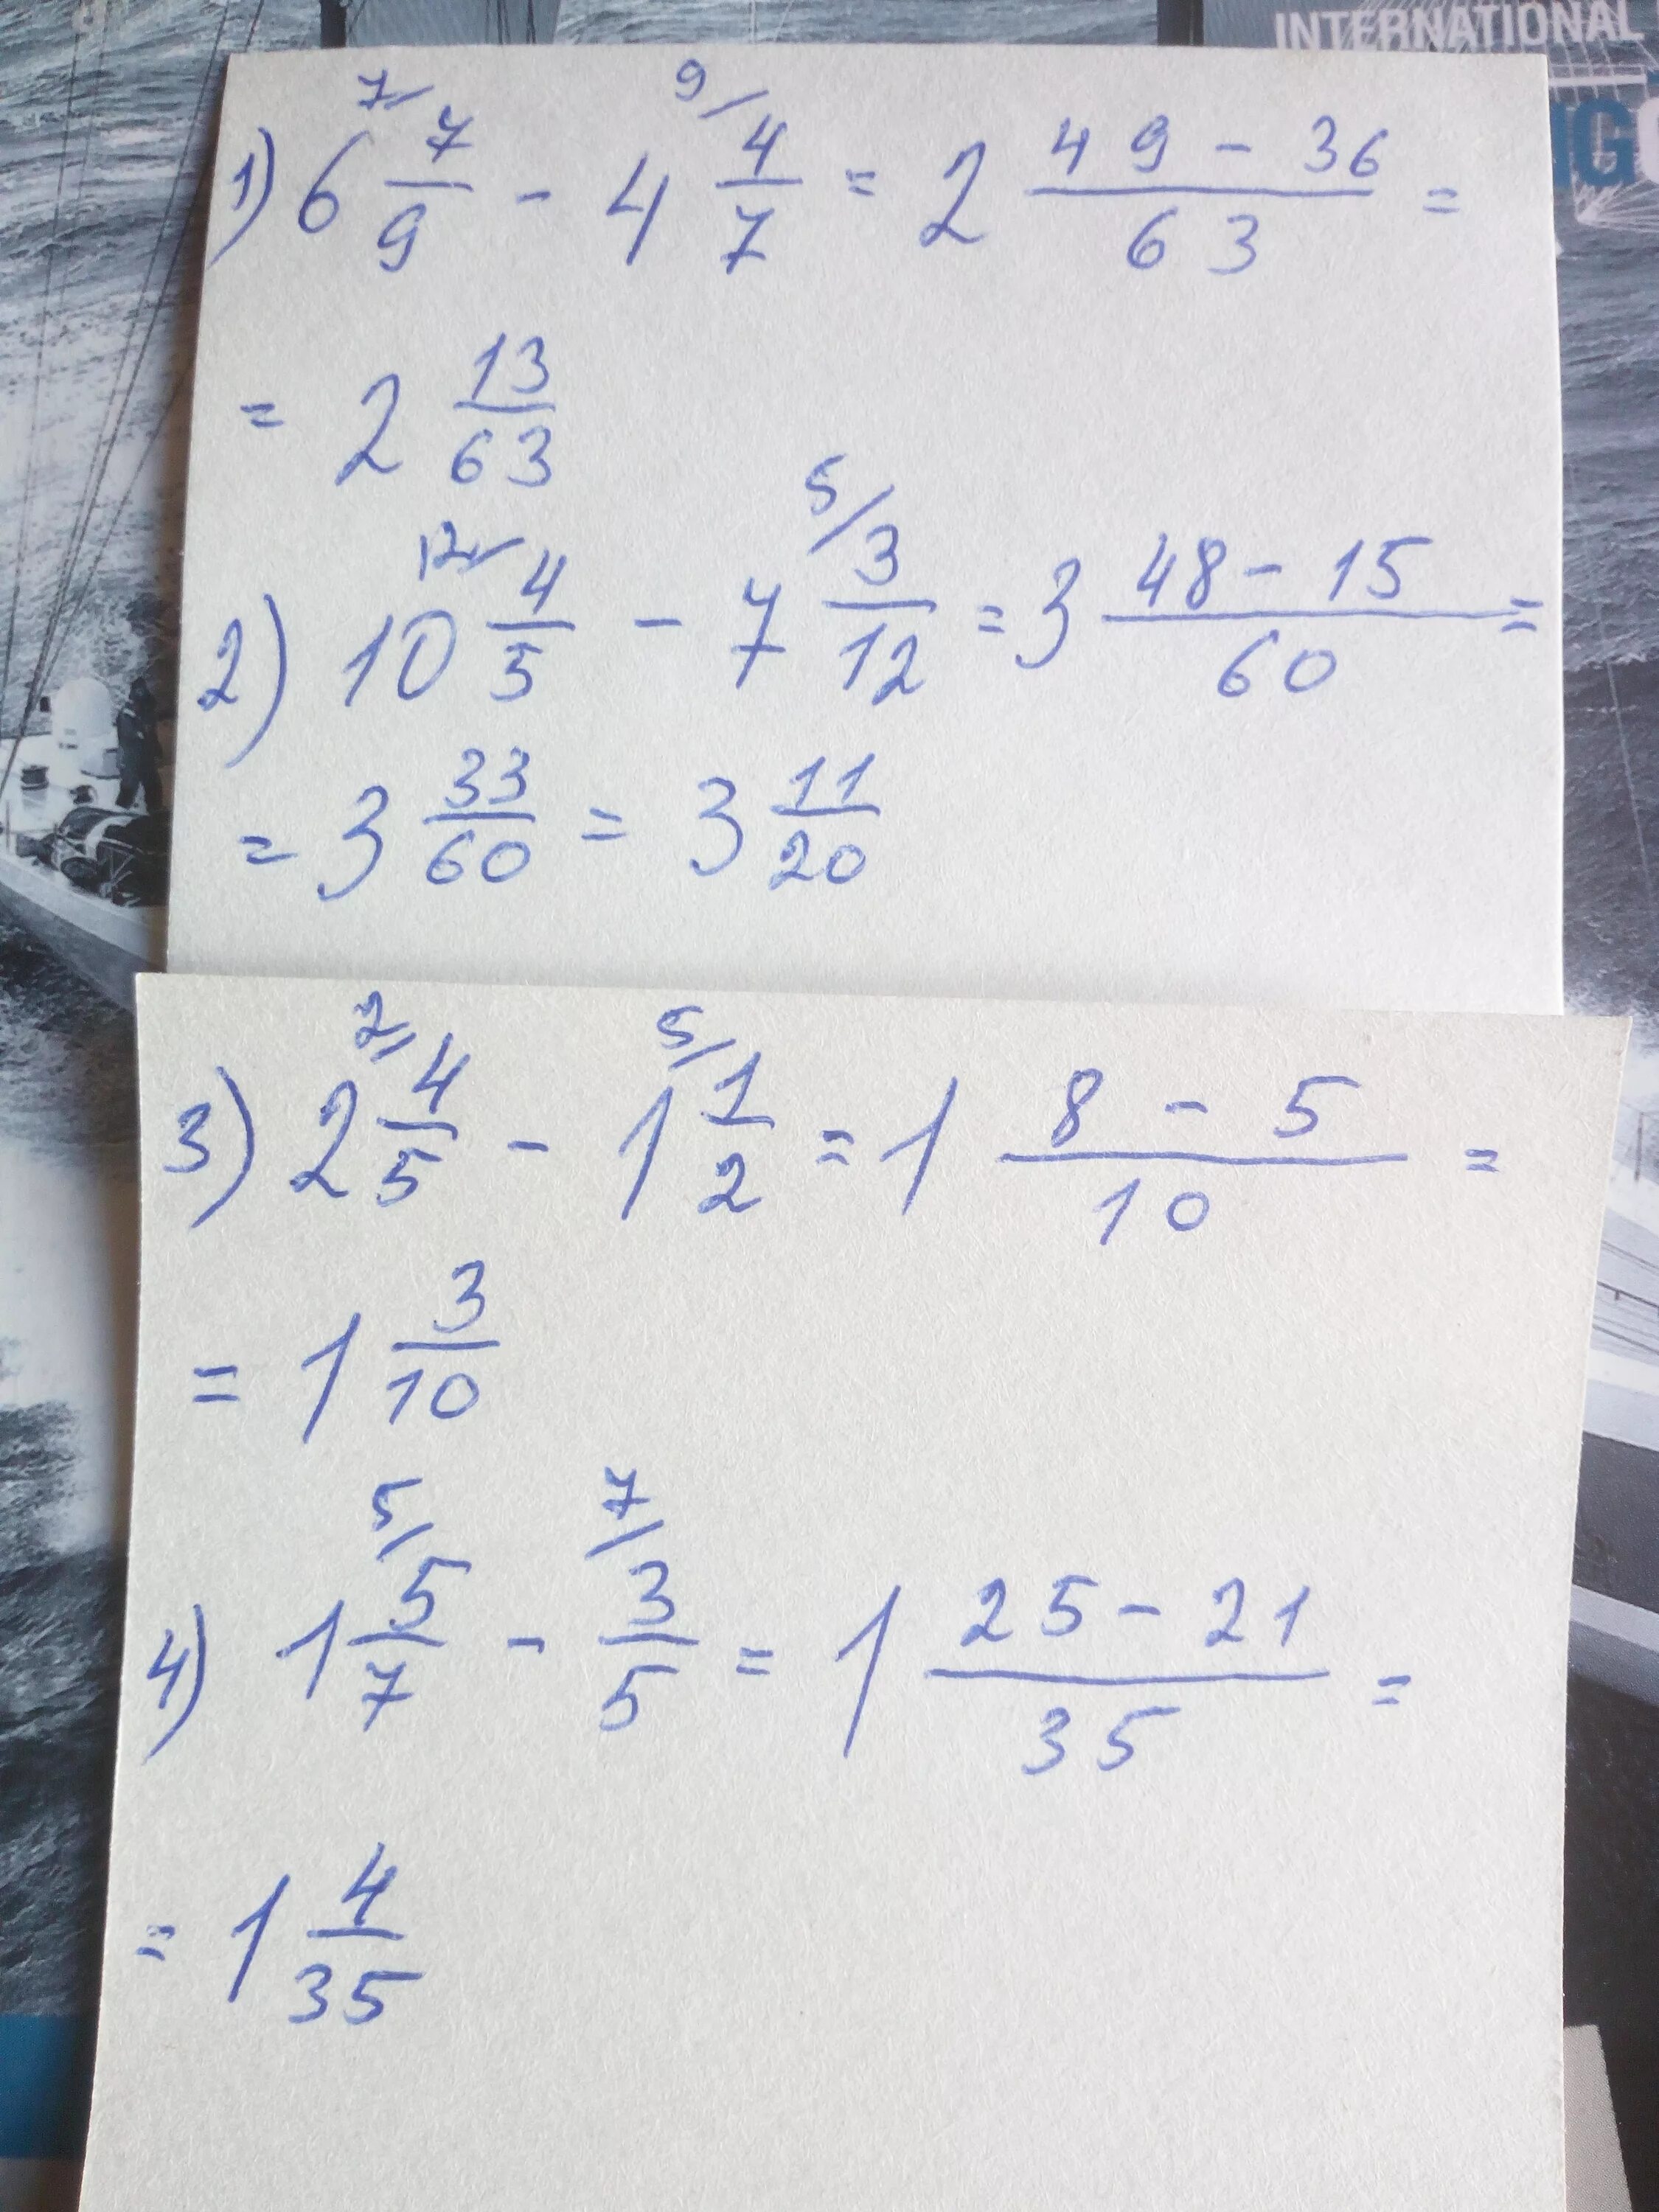 INTERNATIONAL
1) 6 ⁷/ 7/9 - 4 ⁹/ 4/7 = 2 (49 - 36)/63 =
= 2 13/63
2) 10 ¹²/ 4/5 - 7 ⁵/ 3/12 = 3 (48 - 15)/60 =
= 3 33/60 = 3 11/20
3) 2 ²/ 4/5 - 1 ⁵/ 1/2 = 1 (8 - 5)/10 =
= 1 3/10
4) 1 ⁵/ 5/7 - ⁷/ 3/5 = 1 (25 - 21)/35 =
= 1 4/35